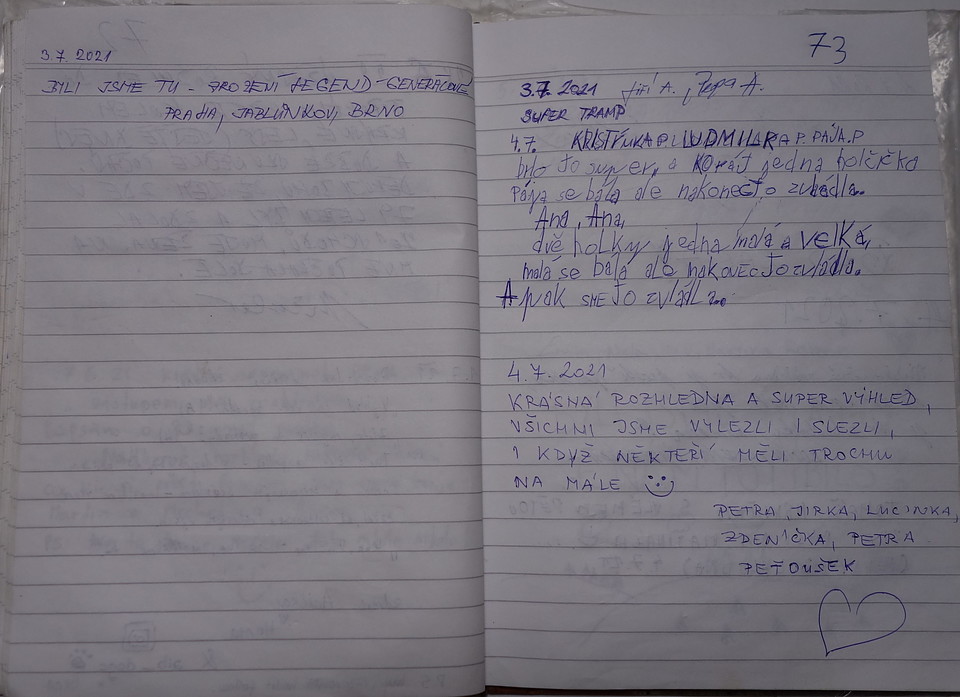 3.7. 2021
BYLI JSME TU - ZROZENÍ LEGEND - GENERACOVÉ
PRAHA, JABLUNKOV, BRNO
73
3.7. 2021 Jiří A., Pepa A.
SUPER TRAMP
4.7. KRISTÝNKA P. LUDMILKA P. PÁJA.P
bylo to super, a KORÁT jedna holčička
Pája se bála ale nakonec to zvládla.
Ana, Ana,
dvě holky jedna malá a velká,
malá se bála ale nakonec to zvládla.
A pak sme to zvládl
4.7. 2021
KRÁSNÁ ROZHLEDNA A SUPER VÝHLED,
VŠICHNI JSME VYLEZLI I SLEZLI,
I KDYŽ NĚKTEŘÍ MĚLI TROCHU
NA MÁLE
PETRA, JIRKA, LUCINKA,
ZDENIČKA, PETRA
PEŤOUŠEK